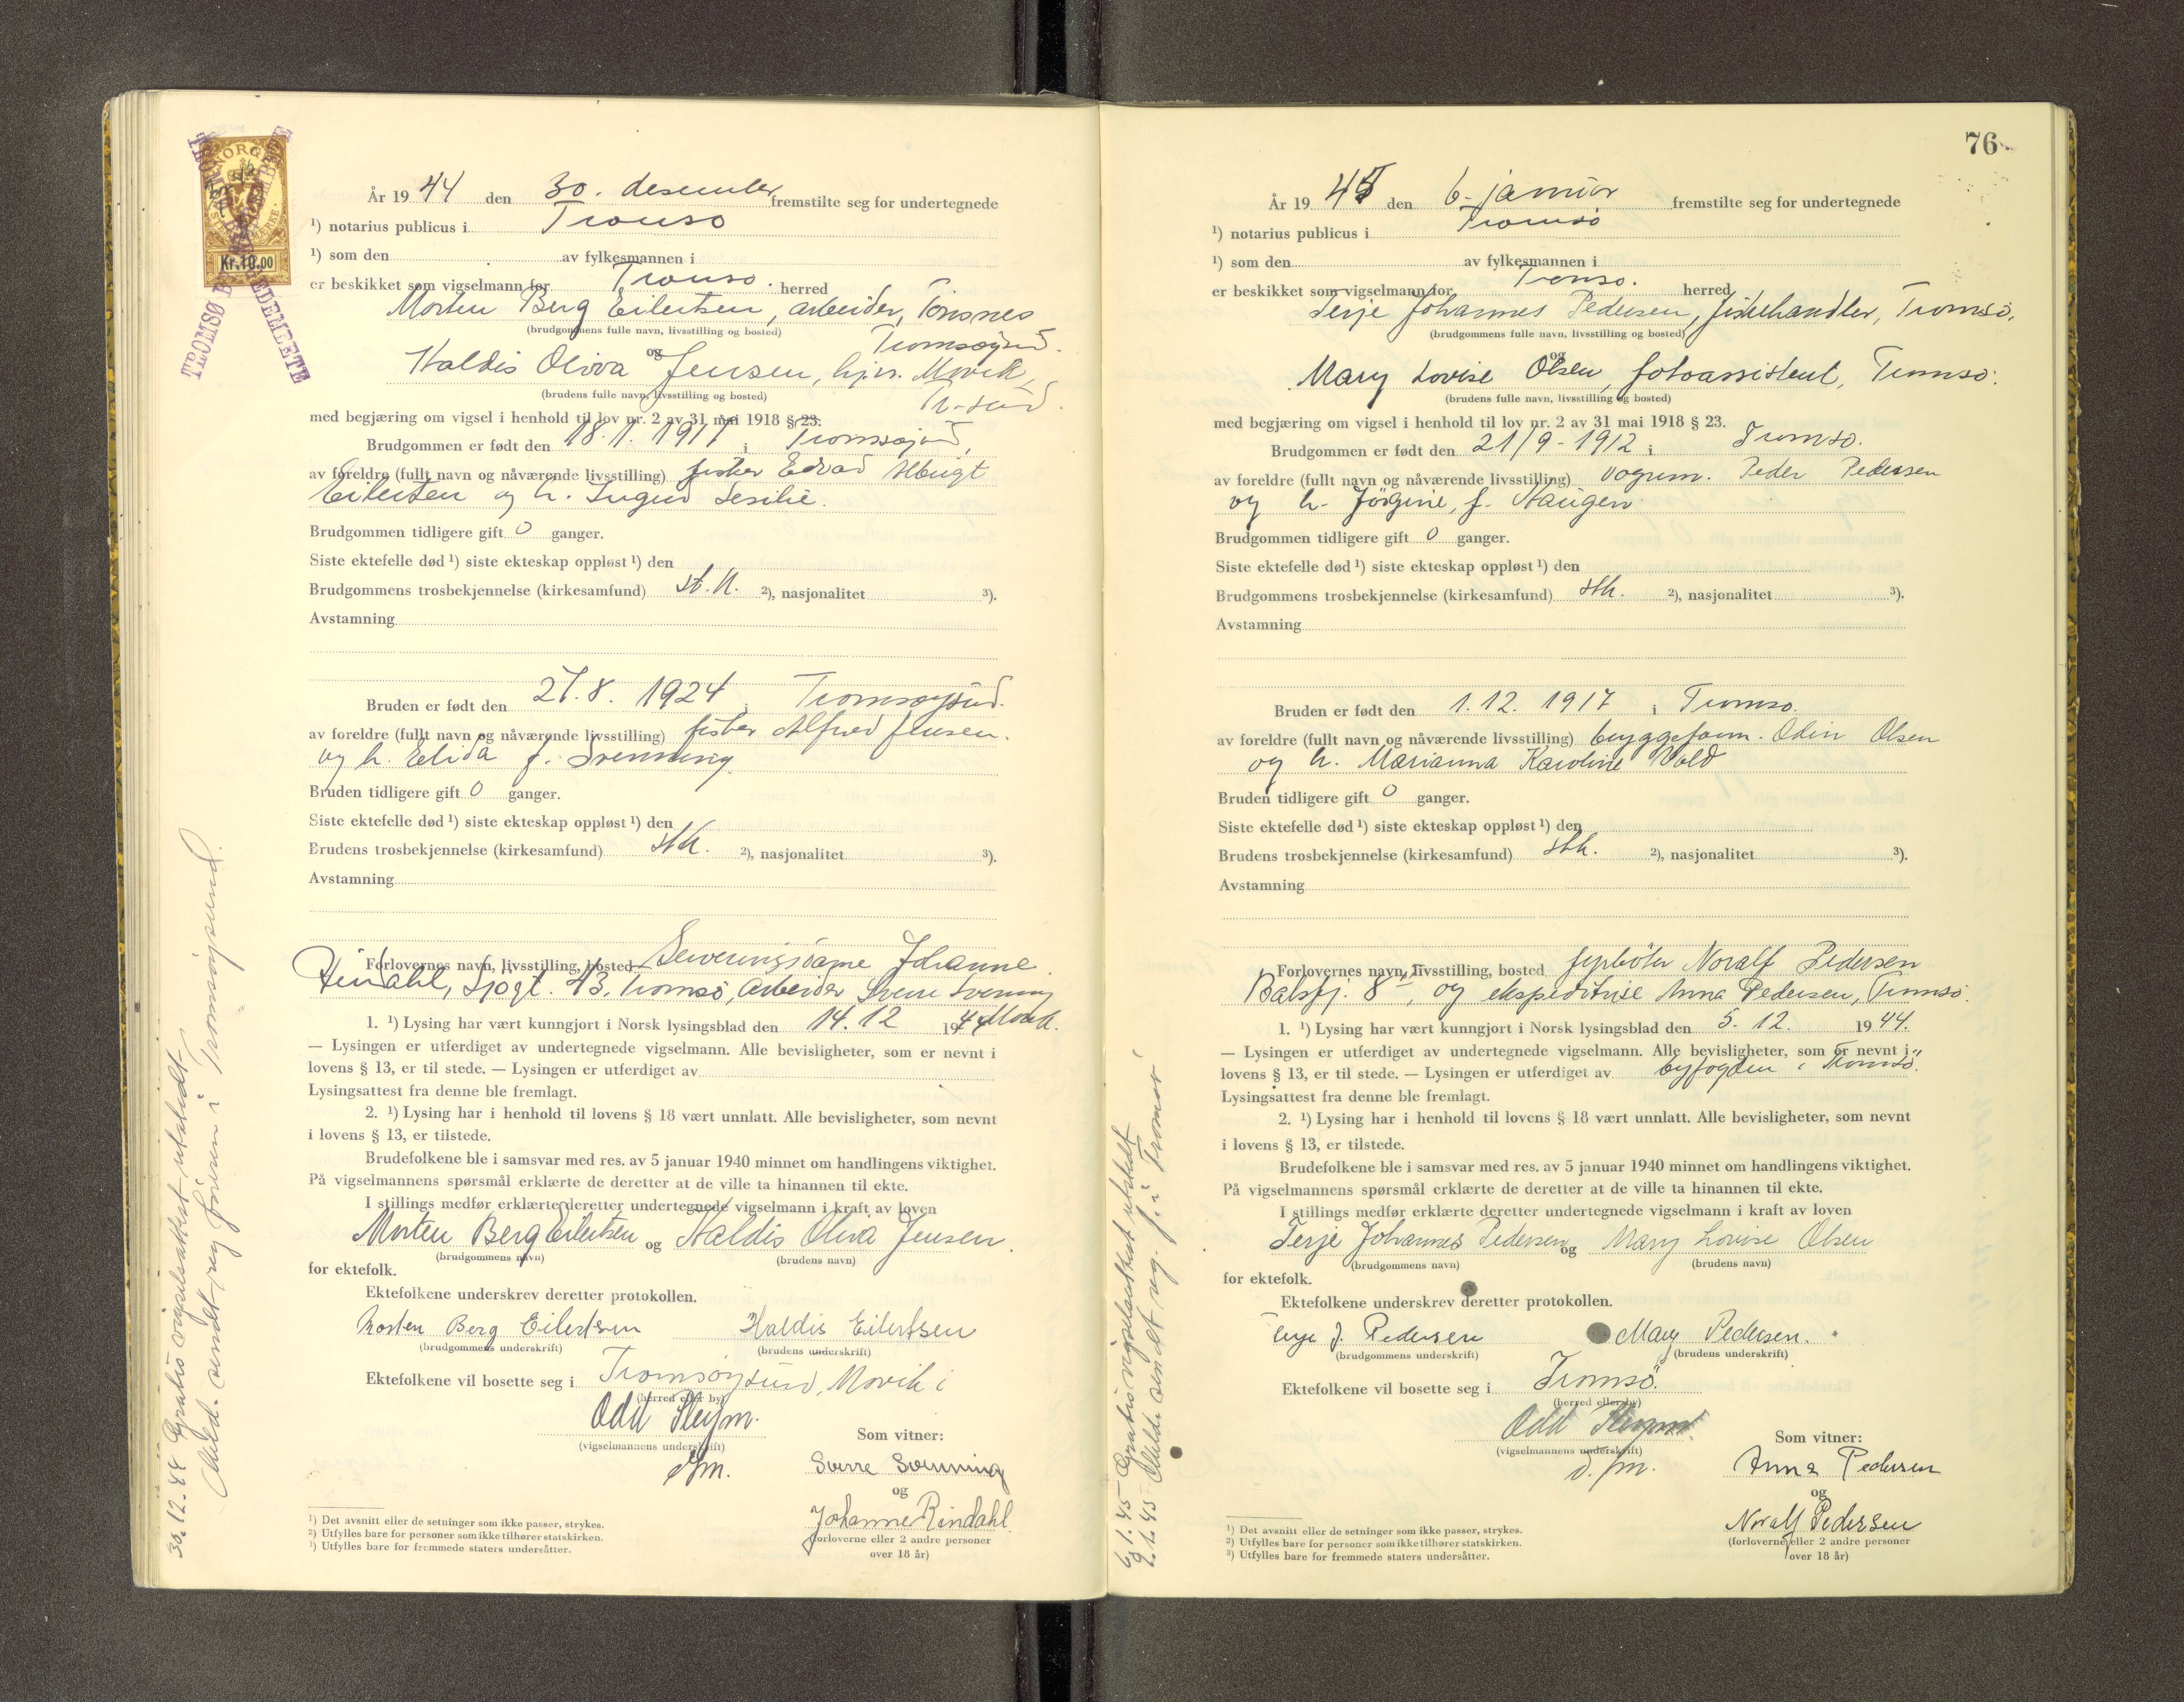 NORGE
Kr.10.00
TROMSØ
År 19 44 den 30. desember fremstilte seg for undertegnede
¹) notarius publicus i Tromsø
¹) som den av fylkesmannen i
er beskikket som vigselmann for Tromsø. herred
Morten Berg Eilertsen, arbeider, Tønsnes
(brudgommens fulle navn, livsstilling og bosted)
Tromsøysund.
og
Haldis Oliva Jensen, hjv. Movik,
(brudens fulle navn, livsstilling og bosted)
Tr-sund.
med begjæring om vigsel i henhold til lov nr. 2 av 31 mai 1918 § 23.
Brudgommen er født den 18.1. 1917 i Tromsøysund,
av foreldre (fullt navn og nåværende livsstilling) fisker Edvard Albrigt
Eilertsen og h.
Brudgommen tidligere gift 0 ganger.
Siste ektefelle død ¹) siste ekteskap oppløst ¹) den
Brudgommens trosbekjennelse (kirkesamfund) st.k. ²), nasjonalitet ³).
Avstamning
Bruden er født den 27.8. 1924 i Tromsøysund.
av foreldre (fullt navn og nåværende livsstilling) fisker Alfred Jensen.
og h. Elida f. Svenning
Bruden tidligere gift 0 ganger.
Siste ektefelle død ¹) siste ekteskap oppløst ¹) den
Brudens trosbekjennelse (kirkesamfund) stk. ²), nasjonalitet ³).
Avstamning
Forlovernes navn, livsstilling, bosted Serveringsdame Johanne
Rindahl, Sjøgt. 43, Tromsø, arbeider Sverre Svenning
1. ¹) Lysing har vært kunngjort i Norsk lysingsblad den 14.12 1944 Movik.
— Lysingen er utferdiget av undertegnede vigselmann. Alle bevisligheter, som er nevnt i
lovens § 13, er til stede. — Lysingen er utferdiget av
Lysingsattest fra denne ble fremlagt.
2. ¹) Lysing har i henhold til lovens § 18 vært unnlatt. Alle bevisligheter, som nevnt
i lovens § 13, er tilstede.
Brudefolkene ble i samsvar med res. av 5 januar 1940 minnet om handlingens viktighet.
På vigselmannens spørsmål erklærte de deretter at de ville ta hinannen til ekte.
I stillings medfør erklærte deretter undertegnede vigselmann i kraft av loven
Morten Berg Eilertsen og Haldis Oliva Jensen.
(brudgommens navn) (brudens navn)
for ektefolk.
Ektefolkene underskrev deretter protokollen.
Morten Berg Eilertsen Haldis Eilertsen
(brudgommens underskrift) (brudens underskrift)
Ektefolkene vil bosette seg i Tromsøysund, Movik i
(herred eller by)
Odd
(vigselmannens underskrift)
Som vitner:
Sverre Svenning
og
Johanne Rindahl.
(forloverne eller 2 andre personer
over 18 år)
¹) Det avsnitt eller de setninger som ikke passer, strykes.
²) Utfylles bare for personer som ikke tilhører statskirken.
³) Utfylles bare for fremmede staters undersåtter.
30.12.44 Gratis vigselsattest utstedt
Meld. sendt reg. føreren i Tromsøysund.
76
År 19 45 den 6. januar fremstilte seg for undertegnede
¹) notarius publicus i Tromsø
¹) som den av fylkesmannen i
er beskikket som vigselmann for Tromsø. herred
Terje Johannes Pedersen, fiskehandler, Tromsø,
(brudgommens fulle navn, livsstilling og bosted)
og
Mary Lovise Olsen, fotoassistent, Tromsø.
(brudens fulle navn, livsstilling og bosted)
med begjæring om vigsel i henhold til lov nr. 2 av 31 mai 1918 § 23.
Brudgommen er født den 21/9-1912 i Tromsø.
av foreldre (fullt navn og nåværende livsstilling) vognm. Peder Pedersen
og h. Jörgine, f. Haugen
Brudgommen tidligere gift 0 ganger.
Siste ektefelle død ¹) siste ekteskap oppløst ¹) den
Brudgommens trosbekjennelse (kirkesamfund) stk. ²), nasjonalitet ³).
Avstamning
Bruden er født den 1.12. 1917 i Tromsø.
av foreldre (fullt navn og nåværende livsstilling) bryggeform. Odin Olsen
og h. Marianna Karoline Vold
Bruden tidligere gift 0 ganger.
Siste ektefelle død ¹) siste ekteskap oppløst ¹) den
Brudens trosbekjennelse (kirkesamfund) stk. ²), nasjonalitet ³).
Avstamning
Forlovernes navn, livsstilling, bosted fyrbøter Noralf Pedersen
Balsfj. 8, og ekspeditrise Anna Pedersen, Tromsø.
1. ¹) Lysing har vært kunngjort i Norsk lysingsblad den 5. 12. 1944.
— Lysingen er utferdiget av undertegnede vigselmann. Alle bevisligheter, som er nevnt i
lovens § 13, er til stede. — Lysingen er utferdiget av byfogden i Tromsø.
Lysingsattest fra denne ble fremlagt.
2. ¹) Lysing har i henhold til lovens § 18 vært unnlatt. Alle bevisligheter, som nevnt
i lovens § 13, er tilstede.
Brudefolkene ble i samsvar med res. av 5 januar 1940 minnet om handlingens viktighet.
På vigselmannens spørsmål erklærte de deretter at de ville ta hinannen til ekte.
I stillings medfør erklærte deretter undertegnede vigselmann i kraft av loven
Terje Johannes Pedersen og Mary Lovise Olsen
(brudgommens navn) (brudens navn)
for ektefolk.
Ektefolkene underskrev deretter protokollen.
Terje J. Pedersen Mary Pedersen.
(brudgommens underskrift) (brudens underskrift)
Ektefolkene vil bosette seg i Tromsö.
(herred eller by)
Odd
(vigselmannens underskrift)
Som vitner:
Anna Pedersen
og
Noralf Pedersen
(forloverne eller 2 andre personer
over 18 år)
¹) Det avsnitt eller de setninger som ikke passer, strykes.
²) Utfylles bare for personer som ikke tilhører statskirken.
³) Utfylles bare for fremmede staters undersåtter.
6/1.45 Gratis vigselsattest utstedt
Melde sendt reg. f. i Tromsø